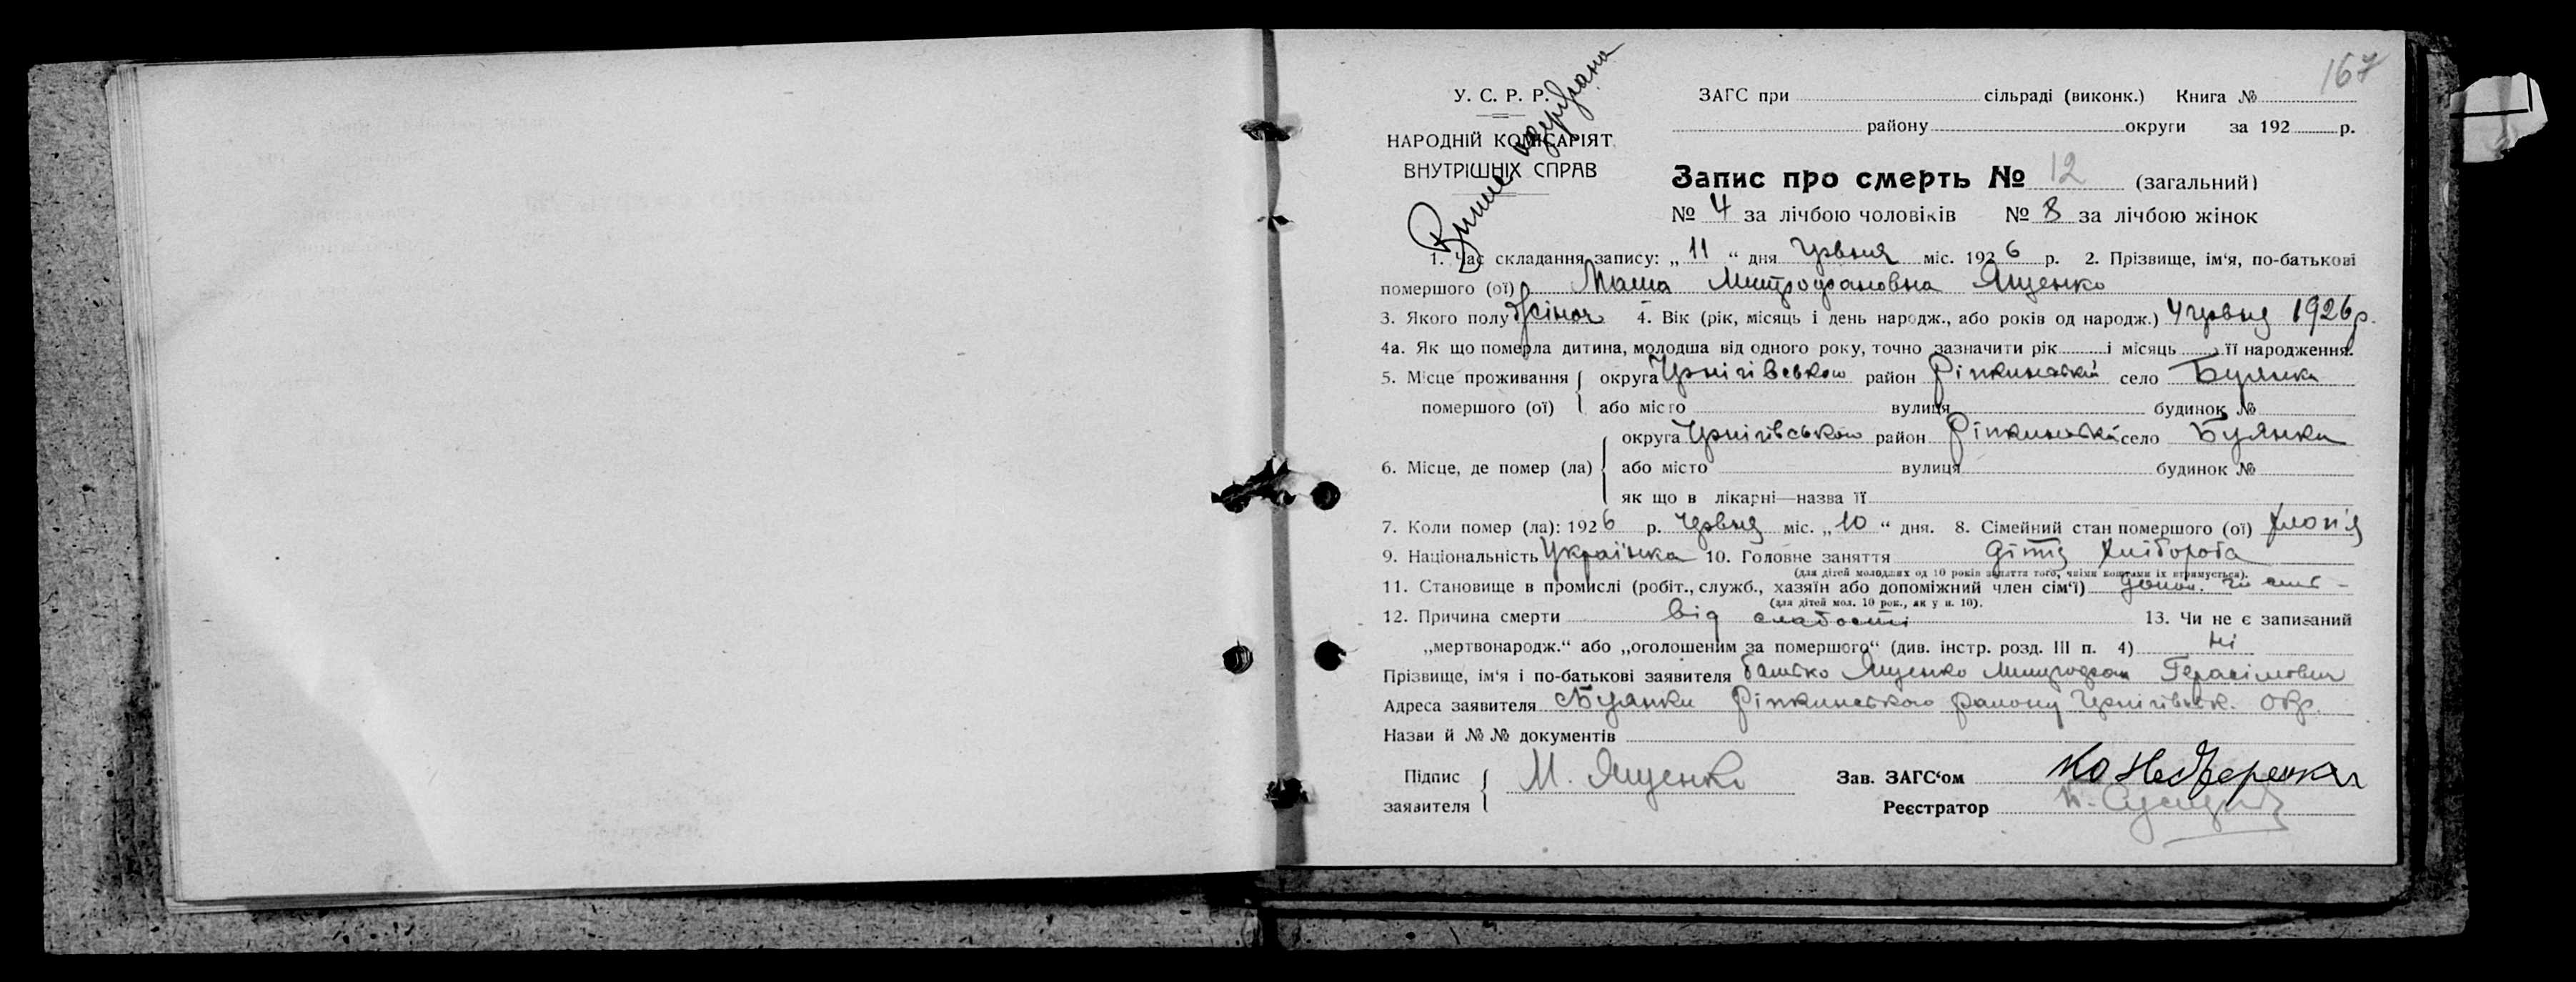 167
У. С. Р. Р.
НАРОДНІЙ КОМІСАРІЯТ
ВНУТРІШНІХ СПРАВ
ЗАГС при сільраді (виконк.) Книга №
району округи за 192 р.
Запис про смерть № 12 (загальний)
№ 4 за лічбою чоловіків № 8 за лічбою жінок
1. Час складання запису: „ 11 “ дня Червня міс. 1926 р. 2. Прізвище, ім‘я, по-батькові
померлого (ої) Маша Митрофановна Ященко
3. Якого полу жіноч 4. Вік (рік, місяць і день народж., або років од народж.) 4 червня 1926 р.
4а. Як що померла дитина, молодша від одного року, точно зазначити рік і місяць її народження.
5. Місце проживання округа Чернігівсько район Ріпкинський село Буянки
помершого (ої) або місто вулиця будинок №
округа Чернігівсько район Ріпкинський село Буянки
6. Місце, де помер (ла) або місто вулиця будинок №
як що в лікарні—назва її
7. Коли помер (ла): 1926 р. червня міс. „ 10 “ дня. 8. Сімейний стан помершого (ої)
9. Національність Українка 10. Головне заняття дітя хлібороба
(для дітей молодших од 10 років заняття того, чиїми коштами їх втримується).
11. Становище в промислі (робіт., служб., хазяїн або допоміжний член сім‘ї) допом.
(для дітей мол. 10 рок., як у п. 10).
12. Причина смерти від слабости 13. Чи не є записаний
„мертвонародж.“ або „оголошеним за помершого“ (див. інстр. розд. III п. 4) Ні
Прізвище, ім‘я і по-батькові заявителя батько Ященко Митрофан Герасімович
Адреса заявителя с Буянки Ріпкинсько району Чернігівськ. Окр.
Назви й № № документів
Підпис М. Ященко Зав. ЗАГС‘ом
заявителя Реєстратор